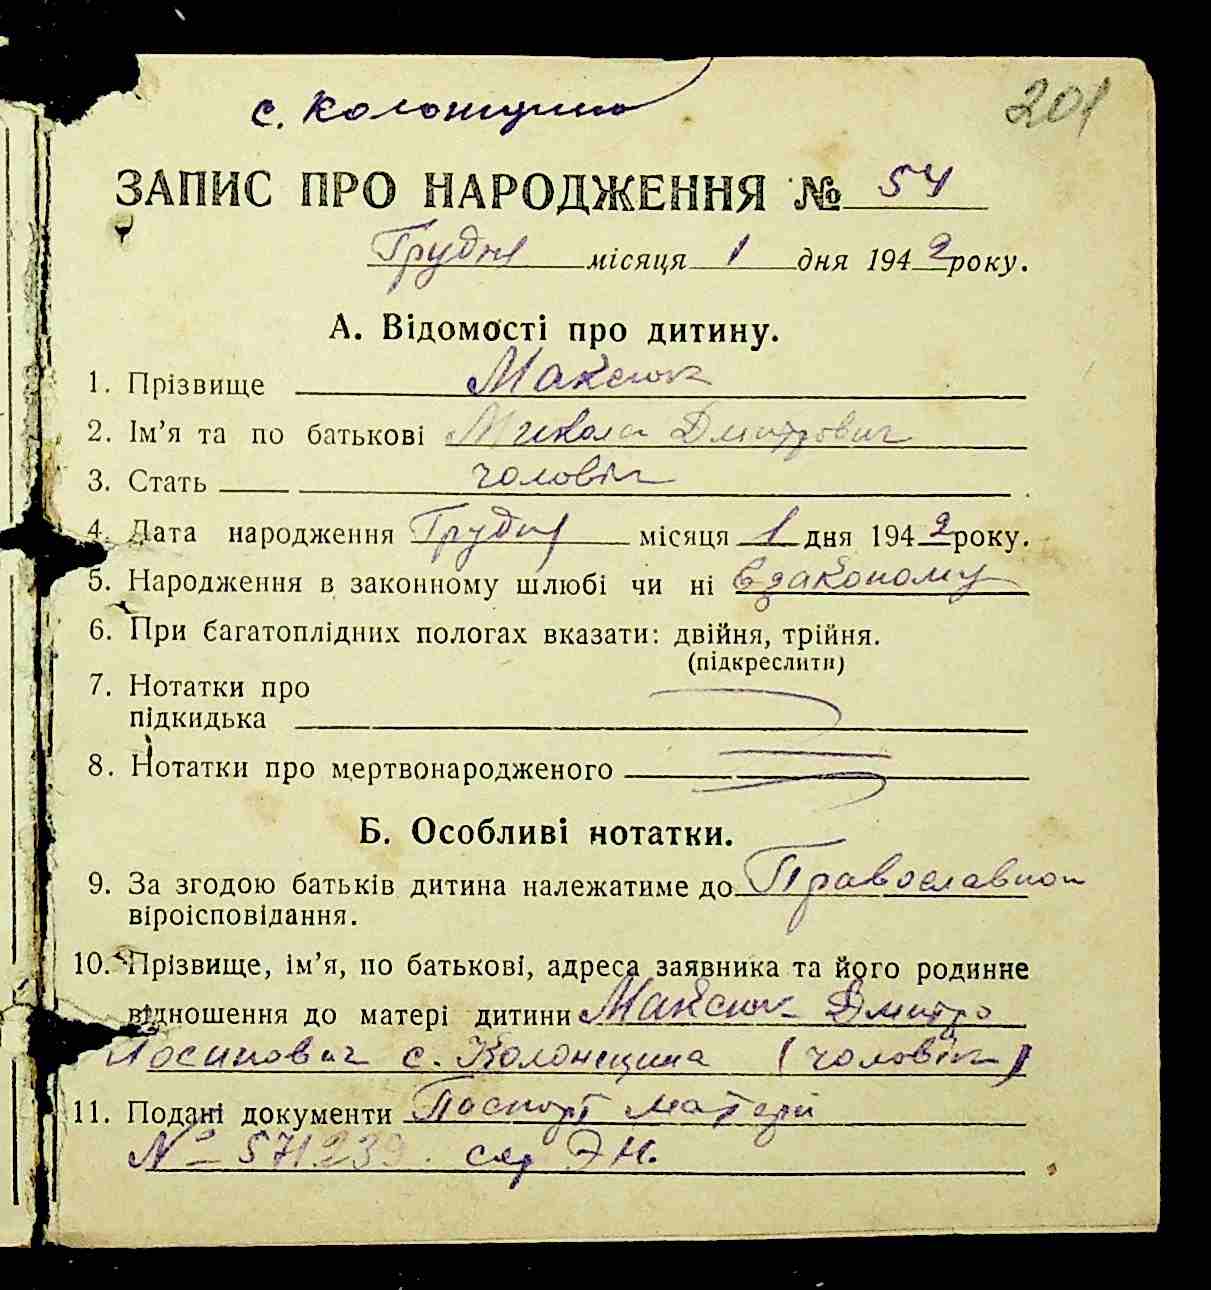 с. Колонщина
201
ЗАПИС ПРО НАРОДЖЕННЯ № 54
Грудня місяця 1 дня 1942 року.
А. Відомості про дитину.
1. Прізвище Максюк
2. Ім’я та по батькові Микола Дмитрович
3. Стать чоловік
4. Дата народження Грудня місяця 1 дня 1942 року.
5. Народження в законному шлюбі чи ні В законому
6. При багатоплідних пологах вказати: двійня, трійня.
(підкреслити)
7. Нотатки про
підкидька
8. Нотатки про мертвонародженого
Б. Особливі нотатки.
9. За згодою батьків дитина належатиме до Православной
віроісповідання.
10. Прізвище, ім’я, по батькові, адреса заявника та його родинне
відношення до матері дитини Максюк Дмитро
с. Колонщина (чоловік)
11. Подані документи Паспорт матері
№ 571239. сер ЭН.